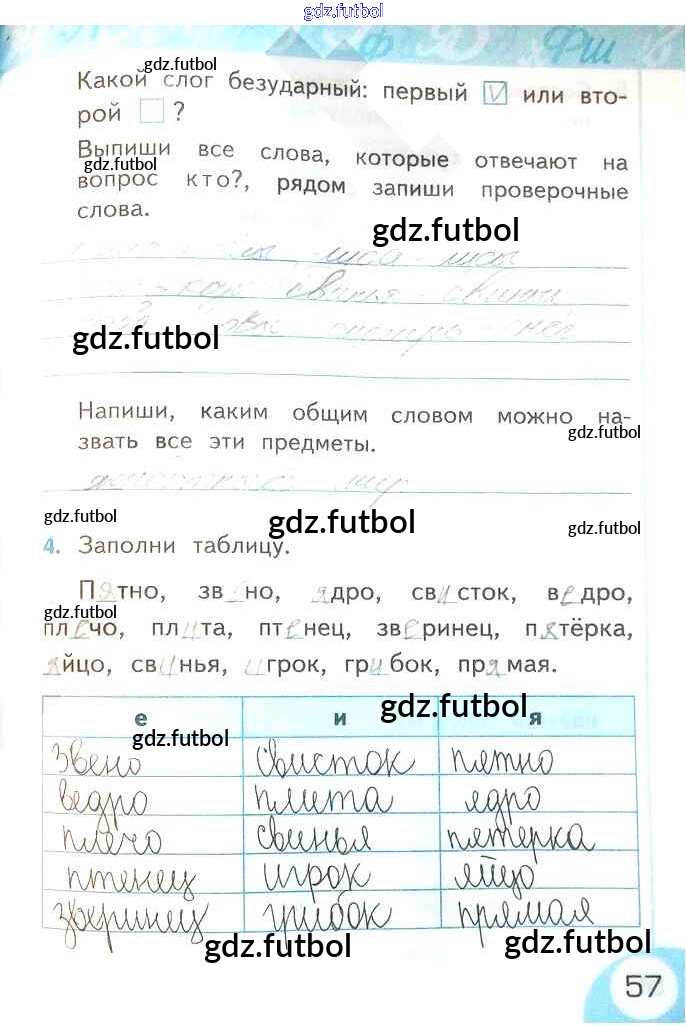 gdz.futbol
gdz.futbol
Какой слог безударный: первый V или вто-
рой ?
Выпиши все слова, которые отвечают на
gdz.futbol
вопрос кто?, рядом запиши проверочные
слова.
gdz.futbol
лиса - лисы
свинья - свиньи
gdz.futbol
Напиши, каким общим словом можно на-
gdz.futbol
звать все эти предметы.
мир
gdz.futbol gdz.futbol gdz.futbol
4. Заполни таблицу.
Пятно, звено, ядро, свисток, ведро,
gdz.futbol
плечо, плита, птенец, зверинец, пятёрка,
яйцо, свинья, игрок, грибок, прямая.
gdz.futbol
е и я
gdz.futbol
звено свисток пятно
ведро плита ядро
плечо свинья пятерка
птенец игрок яйцо
зверинец грибок прямая
gdz.futbol gdz.futbol
57